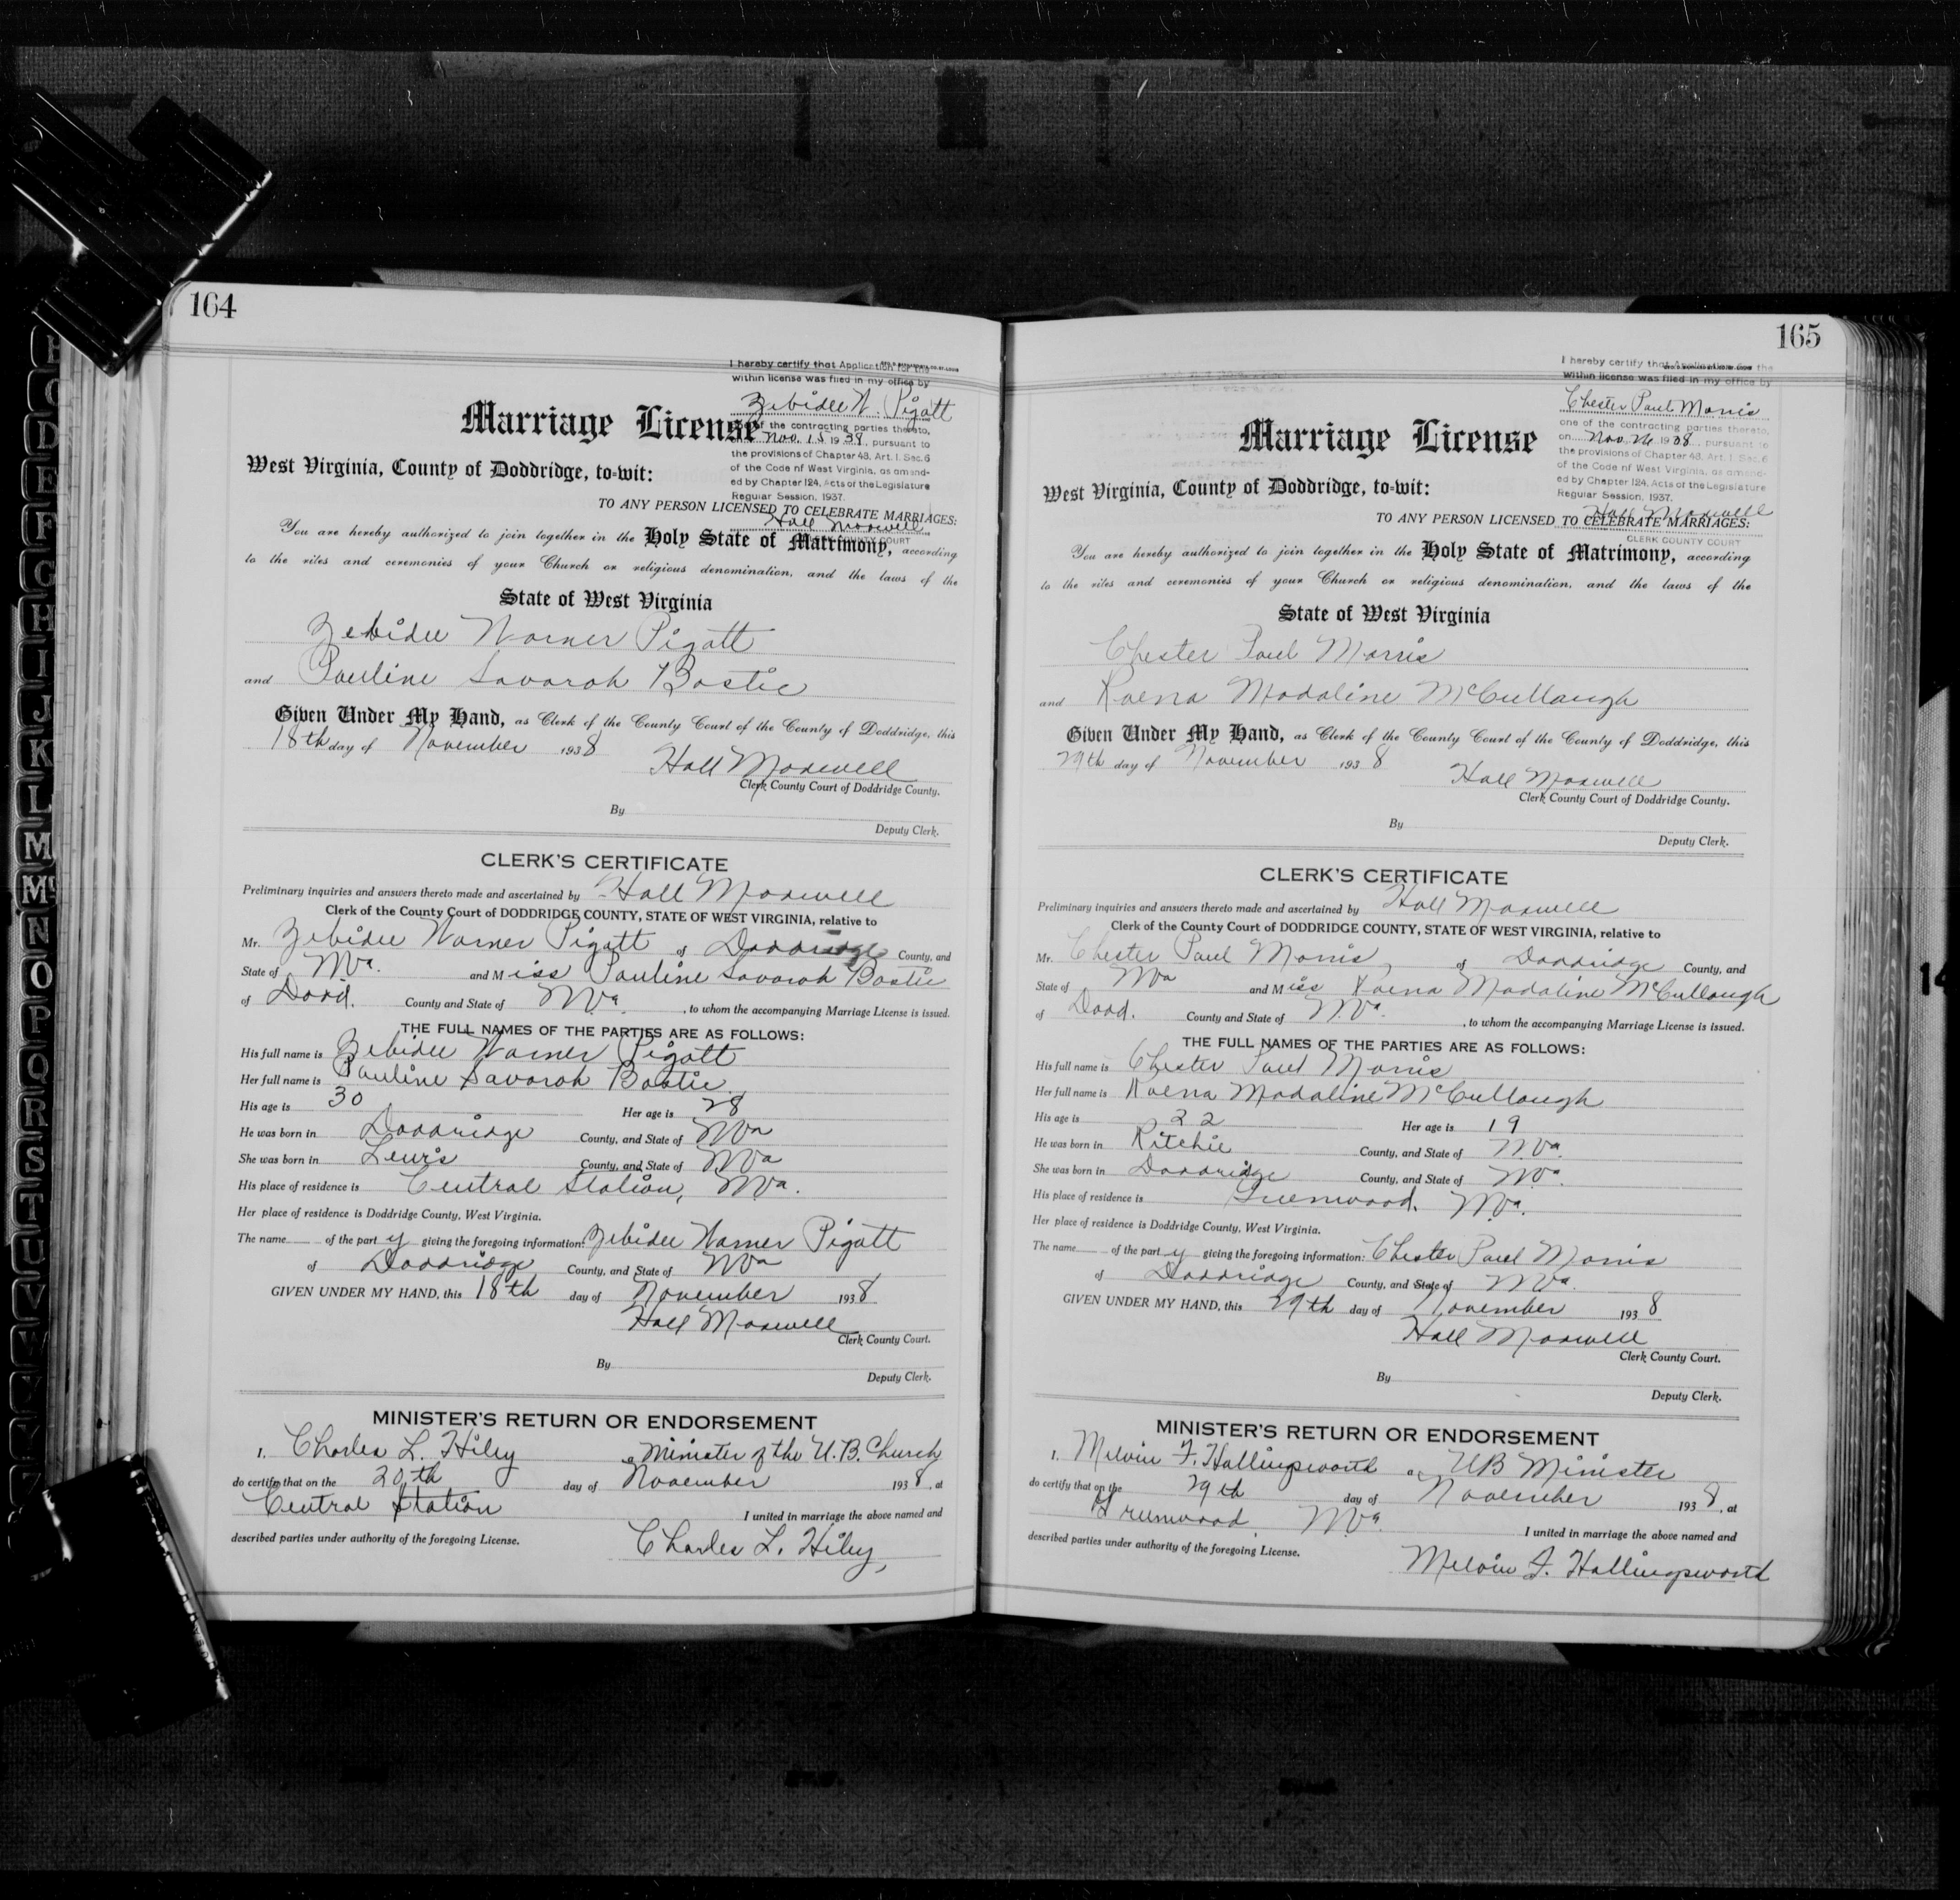 164
I hereby certify that Application for the
within license was filed in my office by
Zebidee W. Pigott
of the contracting parties thereto,
on Nov. 15 1938, pursuant to
the provisions of Chapter 48, Art. I. Sec. 6
of the Code of West Virginia, as amend-
ed by Chapter 124, Acts of the Legislature
Regular Session, 1937.
Hall Maxwell
CLERK COUNTY COURT
Marriage License
West Virginia, County of Doddridge, to-wit:
TO ANY PERSON LICENSED TO CELEBRATE MARRIAGES:
You are hereby authorized to join together in the Holy State of Matrimony, according
to the rites and ceremonies of your Church or religious denomination, and the laws of the
State of West Virginia
Zebidee Warner Pigott
and Pauline Savarah Bostic
Given Under My Hand, as Clerk of the County Court of the County of Doddridge, this
18th day of November 1938
Hall Maxwell
Clerk County Court of Doddridge County.
By
Deputy Clerk.
CLERK'S CERTIFICATE
Preliminary inquiries and answers thereto made and ascertained by Hall Maxwell
Clerk of the County Court of DODDRIDGE COUNTY, STATE OF WEST VIRGINIA, relative to
Mr. Zebidee Warner Pigott of Doddridge County, and
State of WVa. and Miss Pauline Savarah Bostic
of Dodd. County and State of WVa. , to whom the accompanying Marriage License is issued.
THE FULL NAMES OF THE PARTIES ARE AS FOLLOWS:
His full name is Zebidee Warner Pigott
Her full name is Pauline Savarah Bostic
His age is 30 Her age is 28
He was born in Doddridge County, and State of WVa
She was born in Lewis County, and State of WVa
His place of residence is Central Station, WVa.
Her place of residence is Doddridge County, West Virginia.
The name of the party giving the foregoing information: Zebidee Warner Pigott
of Doddridge County, and State of WVa
GIVEN UNDER MY HAND, this 18th day of November 1938
Hall Maxwell
Clerk County Court.
By
Deputy Clerk.
MINISTER'S RETURN OR ENDORSEMENT
I, Charles L. Hiley, a Minister of the U.B. Church
do certify that on the 20th day of November 1938, at
Central Station I united in marriage the above named and
described parties under authority of the foregoing License.
Charles L. Hiley,
165
I hereby certify that Application for the
within license was filed in my office by
Chester Paul Morris
one of the contracting parties thereto,
on Nov. 26 1938, pursuant to
the provisions of Chapter 48, Art. I. Sec. 6
of the Code of West Virginia, as amend-
ed by Chapter 124, Acts of the Legislature
Regular Session, 1937.
Hall Maxwell
CLERK COUNTY COURT
Marriage License
West Virginia, County of Doddridge, to-wit:
TO ANY PERSON LICENSED TO CELEBRATE MARRIAGES:
You are hereby authorized to join together in the Holy State of Matrimony, according
to the rites and ceremonies of your Church or religious denomination, and the laws of the
State of West Virginia
Chester Paul Morris
and Raena Madaline McCullaugh
Given Under My Hand, as Clerk of the County Court of the County of Doddridge, this
29th day of November 1938
Hall Maxwell
Clerk County Court of Doddridge County.
By
Deputy Clerk.
CLERK'S CERTIFICATE
Preliminary inquiries and answers thereto made and ascertained by Hall Maxwell
Clerk of the County Court of DODDRIDGE COUNTY, STATE OF WEST VIRGINIA, relative to
Mr. Chester Paul Morris, of Doddridge County, and
State of WVa and Miss Raena Madaline McCullaugh
of Dodd. County and State of W.Va. , to whom the accompanying Marriage License is issued.
THE FULL NAMES OF THE PARTIES ARE AS FOLLOWS:
His full name is Chester Paul Morris
Her full name is Raena Madaline McCullaugh
His age is 22 Her age is 19
He was born in Ritchie County, and State of W.Va.
She was born in Doddridge County, and State of W.Va.
His place of residence is Greenwood. W.Va.
Her place of residence is Doddridge County, West Virginia.
The name of the party giving the foregoing information: Chester Paul Morris
of Doddridge County, and State of W.Va.
GIVEN UNDER MY HAND, this 29th day of November 1938
Hall Maxwell
Clerk County Court.
By
Deputy Clerk.
MINISTER'S RETURN OR ENDORSEMENT
I, Melvin F. Hollingsworth a UB Minister
do certify that on the 29th day of November 1938, at
Greenwood, W.Va. I united in marriage the above named and
described parties under authority of the foregoing License.
Melvin F. Hollingsworth
C
D
E
F
G
H
I
J
K
L
M
Mc
N
O
P
Q
R
S
T
U
V
W
14